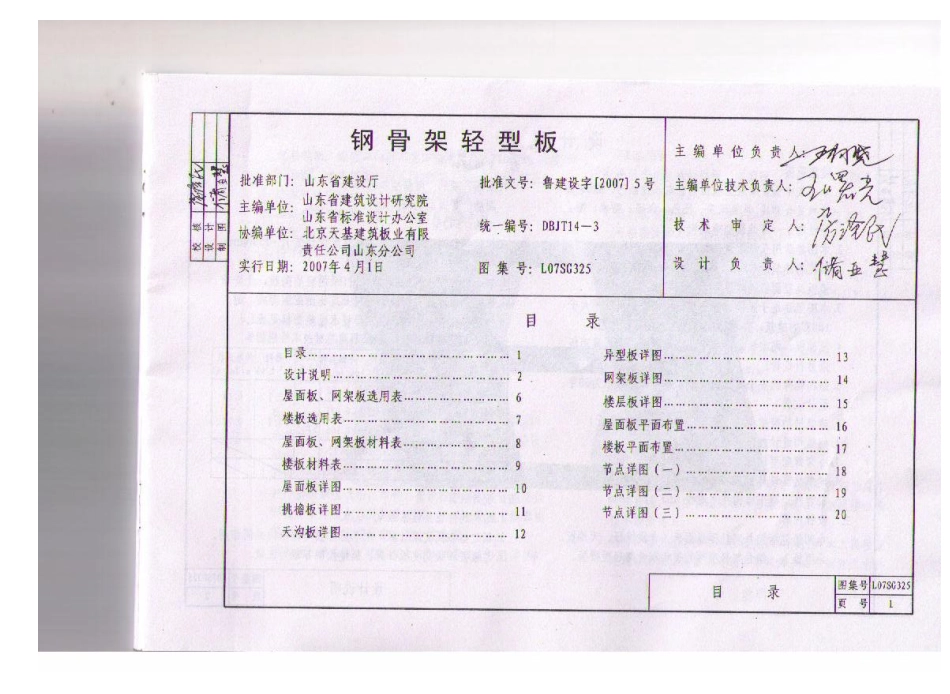 钢骨架轻型板
批准部门: 山东省建设厅
主编单位: 山东省建筑设计研究院
山东省标准设计办公室
协编单位: 北京天基建筑板业有限
责任公司山东分公司
实行日期: 2007年4月1日
批准文号: 鲁建设字[2007] 5 号
统一编号: DBJT14-3
图 集 号: L07SG325
主 编 单 位 负 责 人:
主编单位技术负责人:
技 术 审 定 人:
设 计 负 责 人:
校 核
设 计
制 图
目 录
目录 1
设计说明 2
屋面板、网架板选用表 6
楼板选用表 7
屋面板、网架板材料表 8
楼板材料表 9
屋面板详图 10
挑檐板详图 11
天沟板详图 12
异型板详图 13
网架板详图 14
楼层板详图 15
屋面板平面布置 16
楼板平面布置 17
节点详图 (一) 18
节点详图 (二) 19
节点详图 (三) 20
目 录
图集号 L07SG325
页 号 1